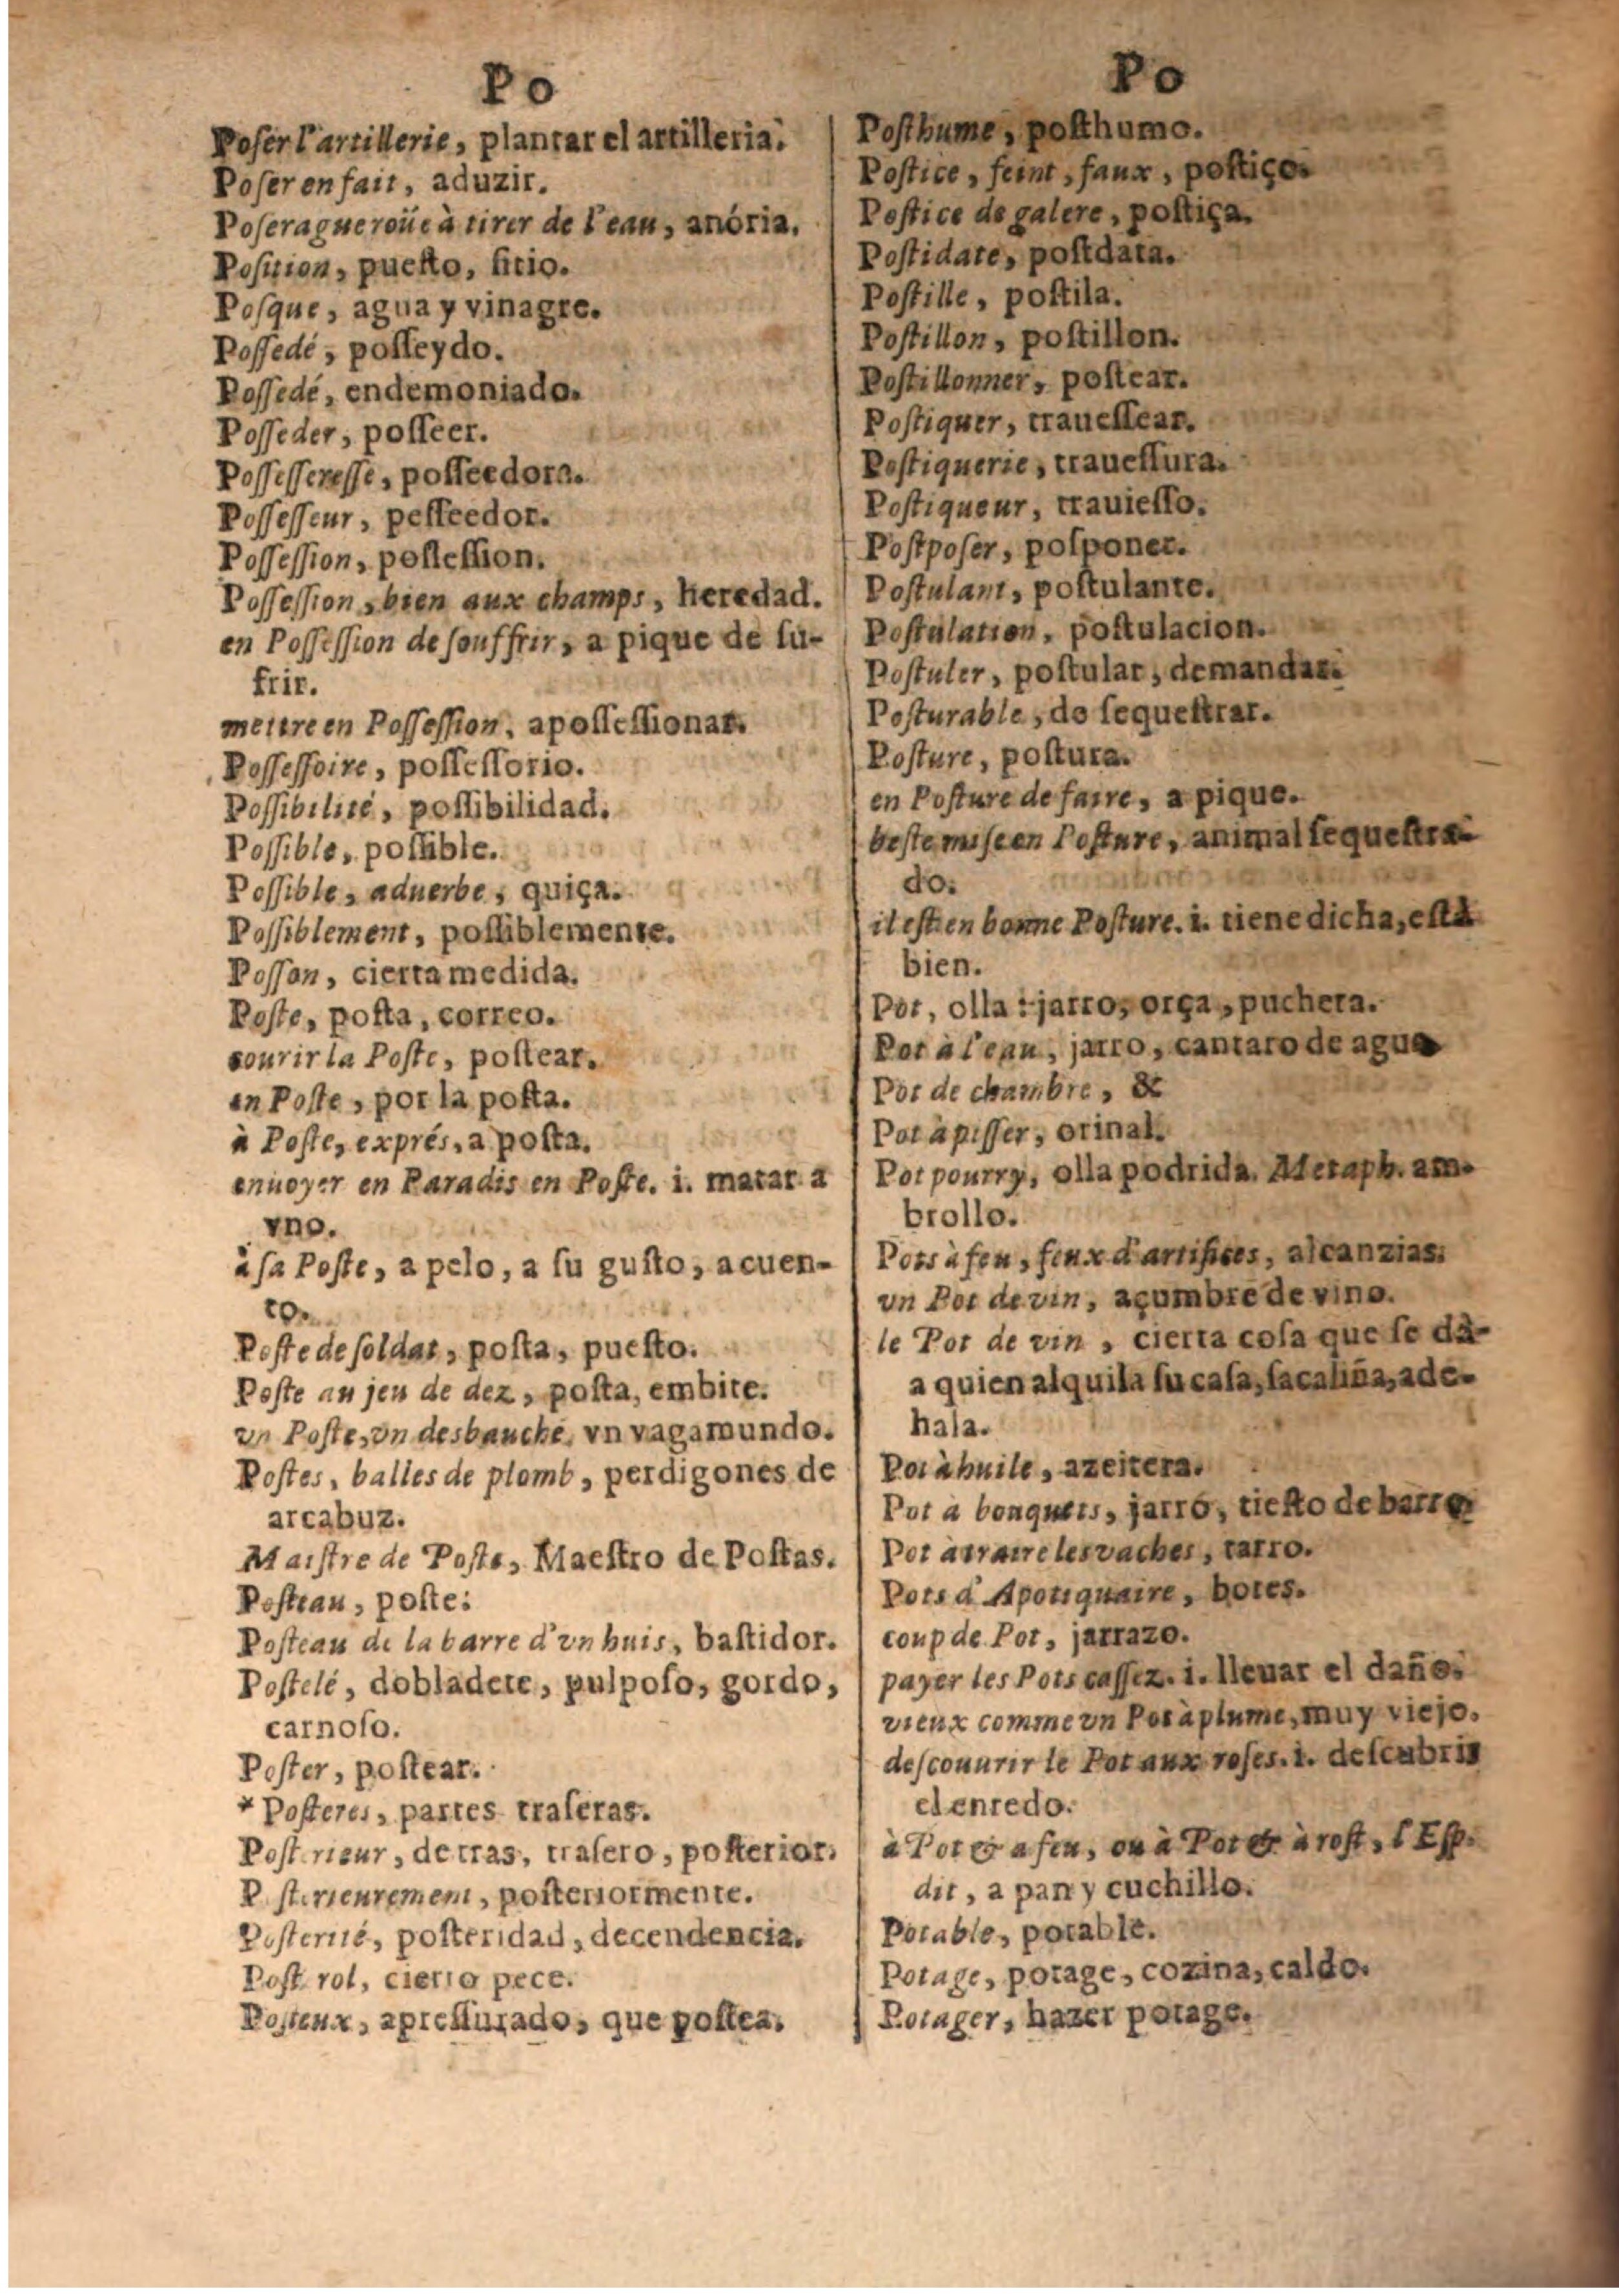 Po
Poſer l'artillerie, plantar el artilleria.
Poſer en fait, aduzir.
Poſeraguë roüe à tirer de l'eau, anória.
Poſition, pueſto, ſitio.
Poſque, agua y vinagre.
Poſſedé, poſſeydo.
Poſſedé, endemoniado.
Poſſeder, poſſeer.
Poſſeſſereſſe, poſſeedora.
Poſſeſſeur, peſſeedor.
Poſſeſſion, poſſeſſion.
Poſſeſſion, bien aux champs, heredad.
en Poſſeſſion de ſouffrir, a pique de ſu-
frir.
mettre en Poſſeſſion, apoſſeſſionar.
Poſſeſſoire, poſſeſſorio.
Poſſibilité, poſſibilidad.
Poſſible, poſſible.
Poſſible, aduerbe, quiça.
Poſſiblement, poſſiblemente.
Poſſon, cierta medida.
Poſte, poſta, correo.
courir la Poſte, poſtear.
en Poſte, por la poſta.
à Poſte, exprés, a poſta.
enuoyer en Paradis en Poſte. i. matar a
vno.
à ſa Poſte, a pelo, a ſu guſto, a cuen-
to.
Poſte de ſoldat, poſta, pueſto.
Poſte au jeu de dez, poſta, embite.
vn Poſte, vn desbauché, vn vagamundo.
Poſtes, balles de plomb, perdigones de
arcabuz.
Maiſtre de Poſte, Maeſtro de Poſtas.
Poſteau, poſte.
Poſteau de la barre d'vn huis, baſtidor.
Poſtelé, dobladete, pulpoſo, gordo,
carnoſo.
Poſter, poſtear.
*Poſteres, partes traſeras.
Poſterieur, detras, traſero, poſterior.
Poſterieurement, poſteriormente.
Poſterité, poſteridad, decendencia.
Poſt rol, cierto pece.
Poſteux, apreſſurado, que poſtea.
Po
Poſthume, poſthumo.
Poſtice, feint, faux, poſtiço.
Poſtice de galere, poſtiça.
Poſtidate, poſtdata.
Poſtille, poſtila.
Poſtillon, poſtillon.
Poſtillonner, poſtear.
Poſtiquer, traueſſear.
Poſtiquerie, traueſſura.
Poſtiqueur, trauieſſo.
Poſtpoſer, poſponer.
Poſtulant, poſtulante.
Poſtulation, poſtulacion.
Poſtuler, poſtular, demandar.
Poſturable, de ſequeſtrar.
Poſture, poſtura.
en Poſture de faire, a pique.
beſte miſe en Poſture, animal ſequeſtra-
do.
il eſt en bonne Poſture. i. tiene dicha, eſtà
bien.
Pot, olla: jarro, orça, puchera.
Pot à l'eau, jarro, cantaro de agua
Pot de chambre, &
Pot à piſſer, orinal.
Pot pourry, olla podrida. Metaph. am-
brollo.
Pots à feu, feux d'artifices, alcanzias.
vn Pot de vin, açumbre de vino.
le Pot de vin, cierta coſa que ſe dà
a quien alquila ſu caſa, ſacaliña, ade-
hala.
Pot à huile, azeitera.
Pot à bouquets, jarró, tieſto de barro
Pot à traire les vaches, tarro.
Pots d'Apotiquaire, botes.
coup de Pot, jarrazo.
payer les Pots caſſez. i. lleuar el daño.
vieux comme vn Pot à plume, muy viejo.
deſcouurir le Pot aux roſes. i. deſcubrir
el enredo.
à Pot & a feu, ou à Pot & à roſt, l'Eſp.
dit, a pan y cuchillo.
Potable, potable.
Potage, potage, cozina, caldo.
Potager, hazer potage.